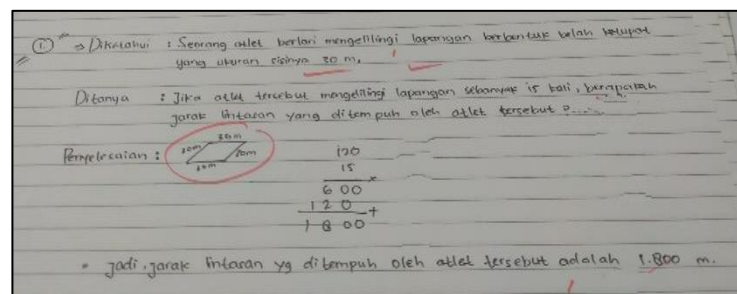 1. ⇒ Diketahui : Seorang atlet berlari mengelilingi lapangan berbentuk belah ketupat
yang ukuran sisinya 30 m,
Ditanya : Jika atlet tersebut mengelilingi lapangan sebanyak 15 kali, berapakah
jarak lintasan yang ditempuh oleh atlet tersebut ?....
Penyelesaian :
30m
30m
30m
30m
120
15
×
600
120
+
1800
• Jadi, jarak lintasan yg ditempuh oleh atlet tersebut adalah 1.800 m.